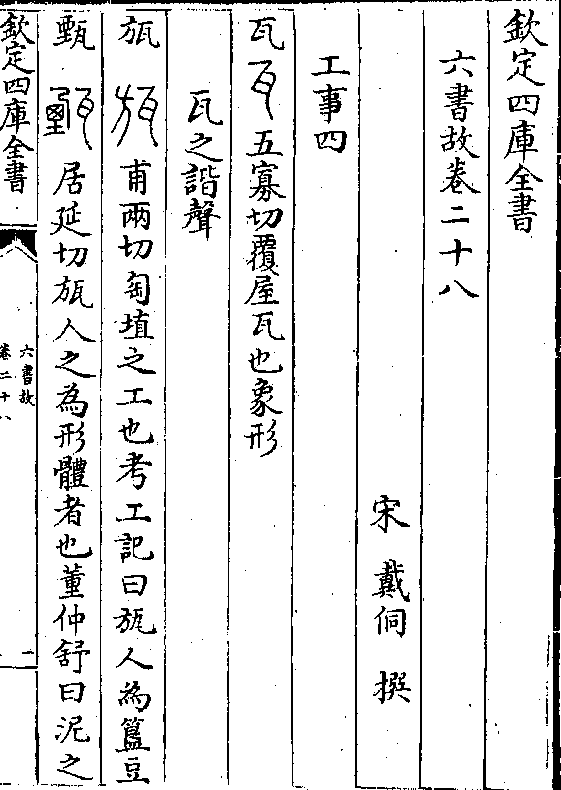 欽定四庫全書
六書故卷二十八
宋 戴侗 撰
工事四
瓦 五寡切覆屋瓦也象形
瓦之諧聲
瓬 甫兩切匋埴之工也考工記曰瓬人為簋豆
甄 居延切瓬人之為形體者也董仲舒曰泥之
欽定四庫全書
六書故
卷二十八
一